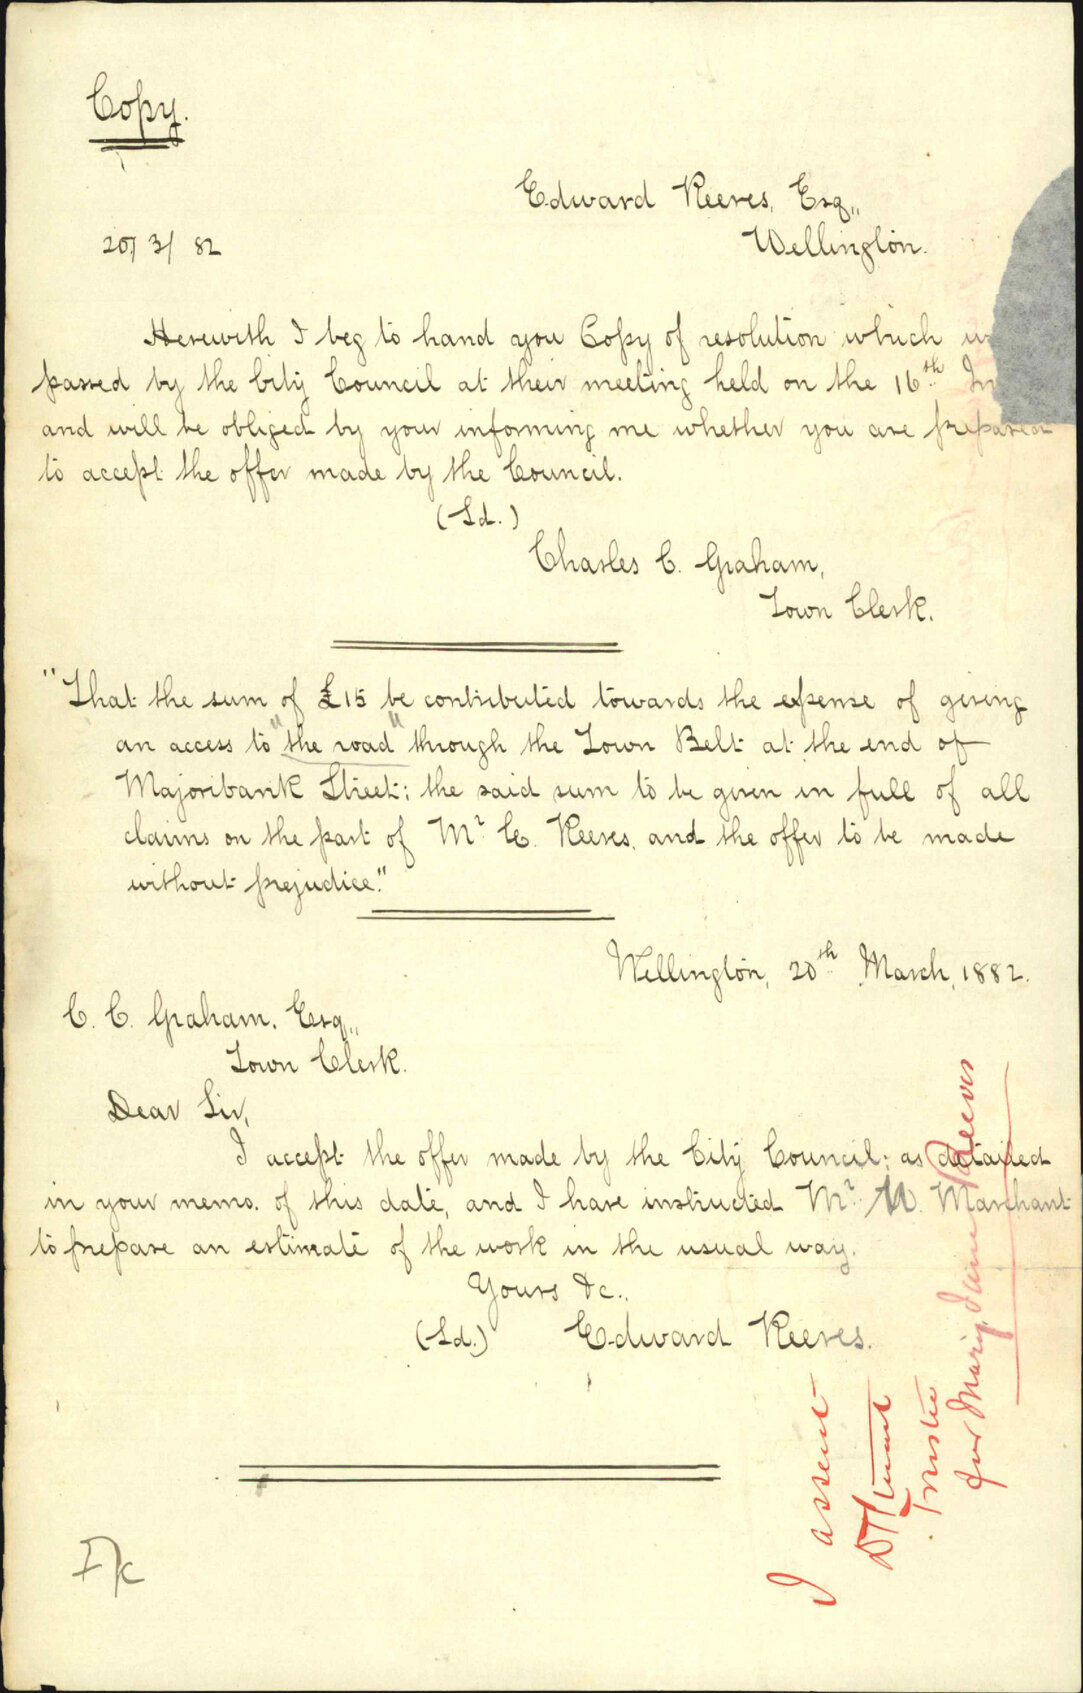 Copy.
Edward Reeves, Esq.,,
Wellington.
20/ 3/ 82
Herewith I beg to hand you Copy of resolution which
passed by the City Council at their meeting held on the 16th
and will be obliged by your informing me whether you are prepared
to accept the offer made by the Council.
(Sd.)
Charles C. Graham,
Town Clerk.
"That the sum of £15 be contributed towards the expense of giving
an access to "the road" through the Town Belt at the end of
Majoribank Street; the said sum to be given in full of all
claims on the part of Mr. E. Reeves, and the offer to be made
without prejudice."
Wellington, 20th March, 1882.
C. C. Graham, Esq.,,
Town Clerk.
Dear Sir,
I accept the offer made by the City Council; as detailed
in your memo. of this date, and I have instructed Mr. Marchant
to prepare an estimate of the work in the usual way.
Yours &c.,
(Sd.) Edward Reeves.
I assent
Trustee
for Mary Jane Reeves